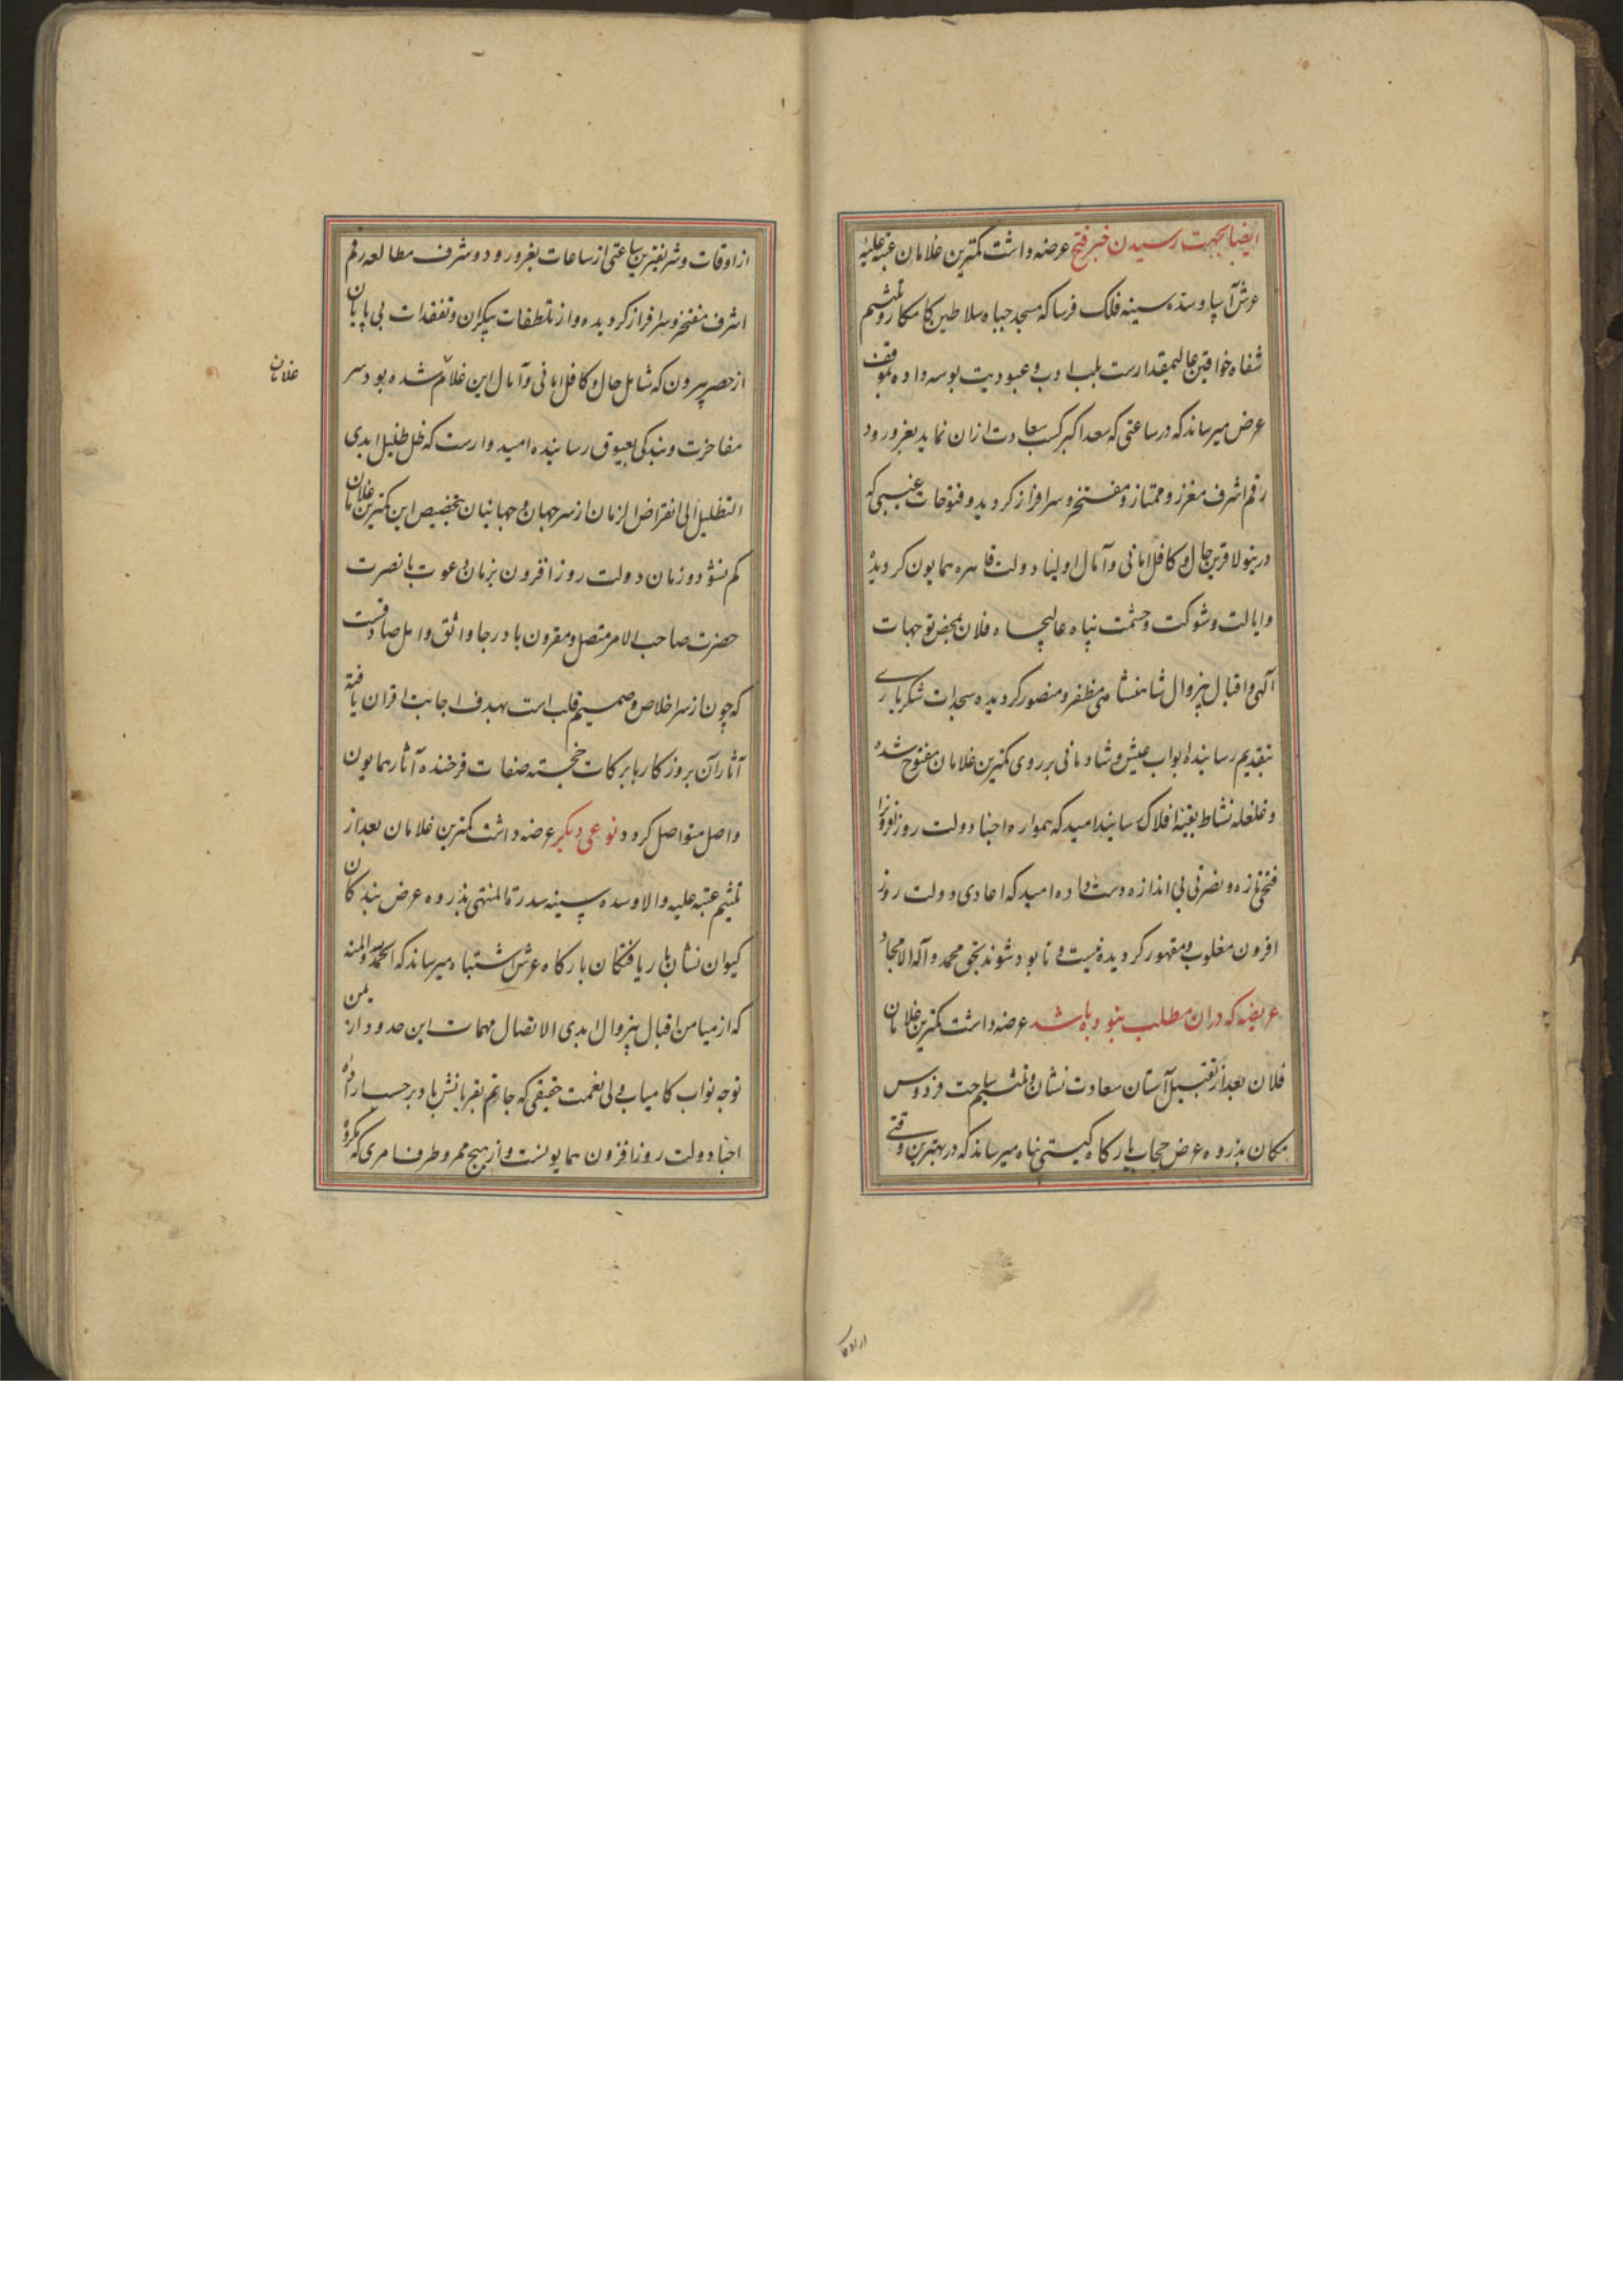 ایضا بجهت رسیدن خبر فتح عرضه داشت کمترین غلامان عتبه علیهٔ
عرش آسا و سده سینه فلک فرسا که مسجد جباه سلاطین کامکار و ملثم
شفاه خواقین عالیمقدارست بلب ادب و عبودیت بوسه داده بموقف
عرض میرساند که در ساعتی که سعد اکبر کسب سعادت ازان نماید بغر ورود
رقم اشرف معزز و ممتاز و مفتخر و سرافراز کردید و فتوحات غیبی که
درینولا قرین حال و کافل امانی و آمال اولیاء دولت قاهره همایون کردیده
و ایالت و شوکت و حشمت پناه عالیجاه فلان بمحض توجهات
آلهی و اقبال بیزوال شاهنشاهی مظفر و منصور کردیده سجدات شکر باری
بتقدیم رسانیده ابواب عیش و شادمانی بر روی کمترین غلامان مفتوح شده
و غلغله نشاط بقبهٔ افلاک رسانید امید که همواره احباء دولت روزافزونرا
فتحی تازه و نصرتی بی اندازه دست داده امید که اعادی دولت روز
افزون مغلوب و مقهور کردیده نیست و نابود شوند بحق محمد و آله الامجاد
عریضه که دران مطلب نبوده باشد عرضه داشت کمترین غلامان
فلان بعد از تقبیل آستان سعادت نشان و تلثیم ساحت فردوس
مکان بذروه عرض حجاب بارکاه کیتی پناه میرساند که در بهترین وقتی
از اوقات
از اوقات و شریفترین ساعتی از ساعات بغر ورود و شرف مطالعه رقم
اشرف مفتخر و سرافراز کردیده و از تلطفات بیکران و تفقدات بی پایان
از حصر بیرون که شامل حال و کافل امانی و آمال این غلام شده بود سر
غلامان
مفاخرت و بندکی بعیوق رسانیده امیدوارست که ظل ظلیل ابدی
التظلیل الی انقراض الزمان از سر جهان و جهانیان بتخصیص این کمترین غلامان
کم نشود و زمان دولت روز افزون بزمان دعوت با نصرت
حضرت صاحب الامر متصل و مقرون باد رجا واثق و امل صادقست
که چون از سر اخلاص و صمیم قلب است بهدف اجابت اقران یافته
آثار آن بروزکار با برکات خجسته صفات فرخنده آثار همایون
واصل متواصل کردد نوعی دیکر عرضه داشت کمترین غلامان بعد از
تلثیم عتبه علیه والا و سده سینه سدرة المنتهی بذروه عرض بندکان
کیوان نشان بار یافتکان بارکاه عرش اشتباه میرساند که الحمدلله و المنه
که از میامن اقبال بیزوال ابدی الاتصال مهمات این حدود از یمن
توجه نواب کامیاب ولی نعمت حقیقی که جانم بقربانش باد بر حسب اراده
احباء دولت روزافزون همایونست و از هیچ ممر و طرف امری که مکروه